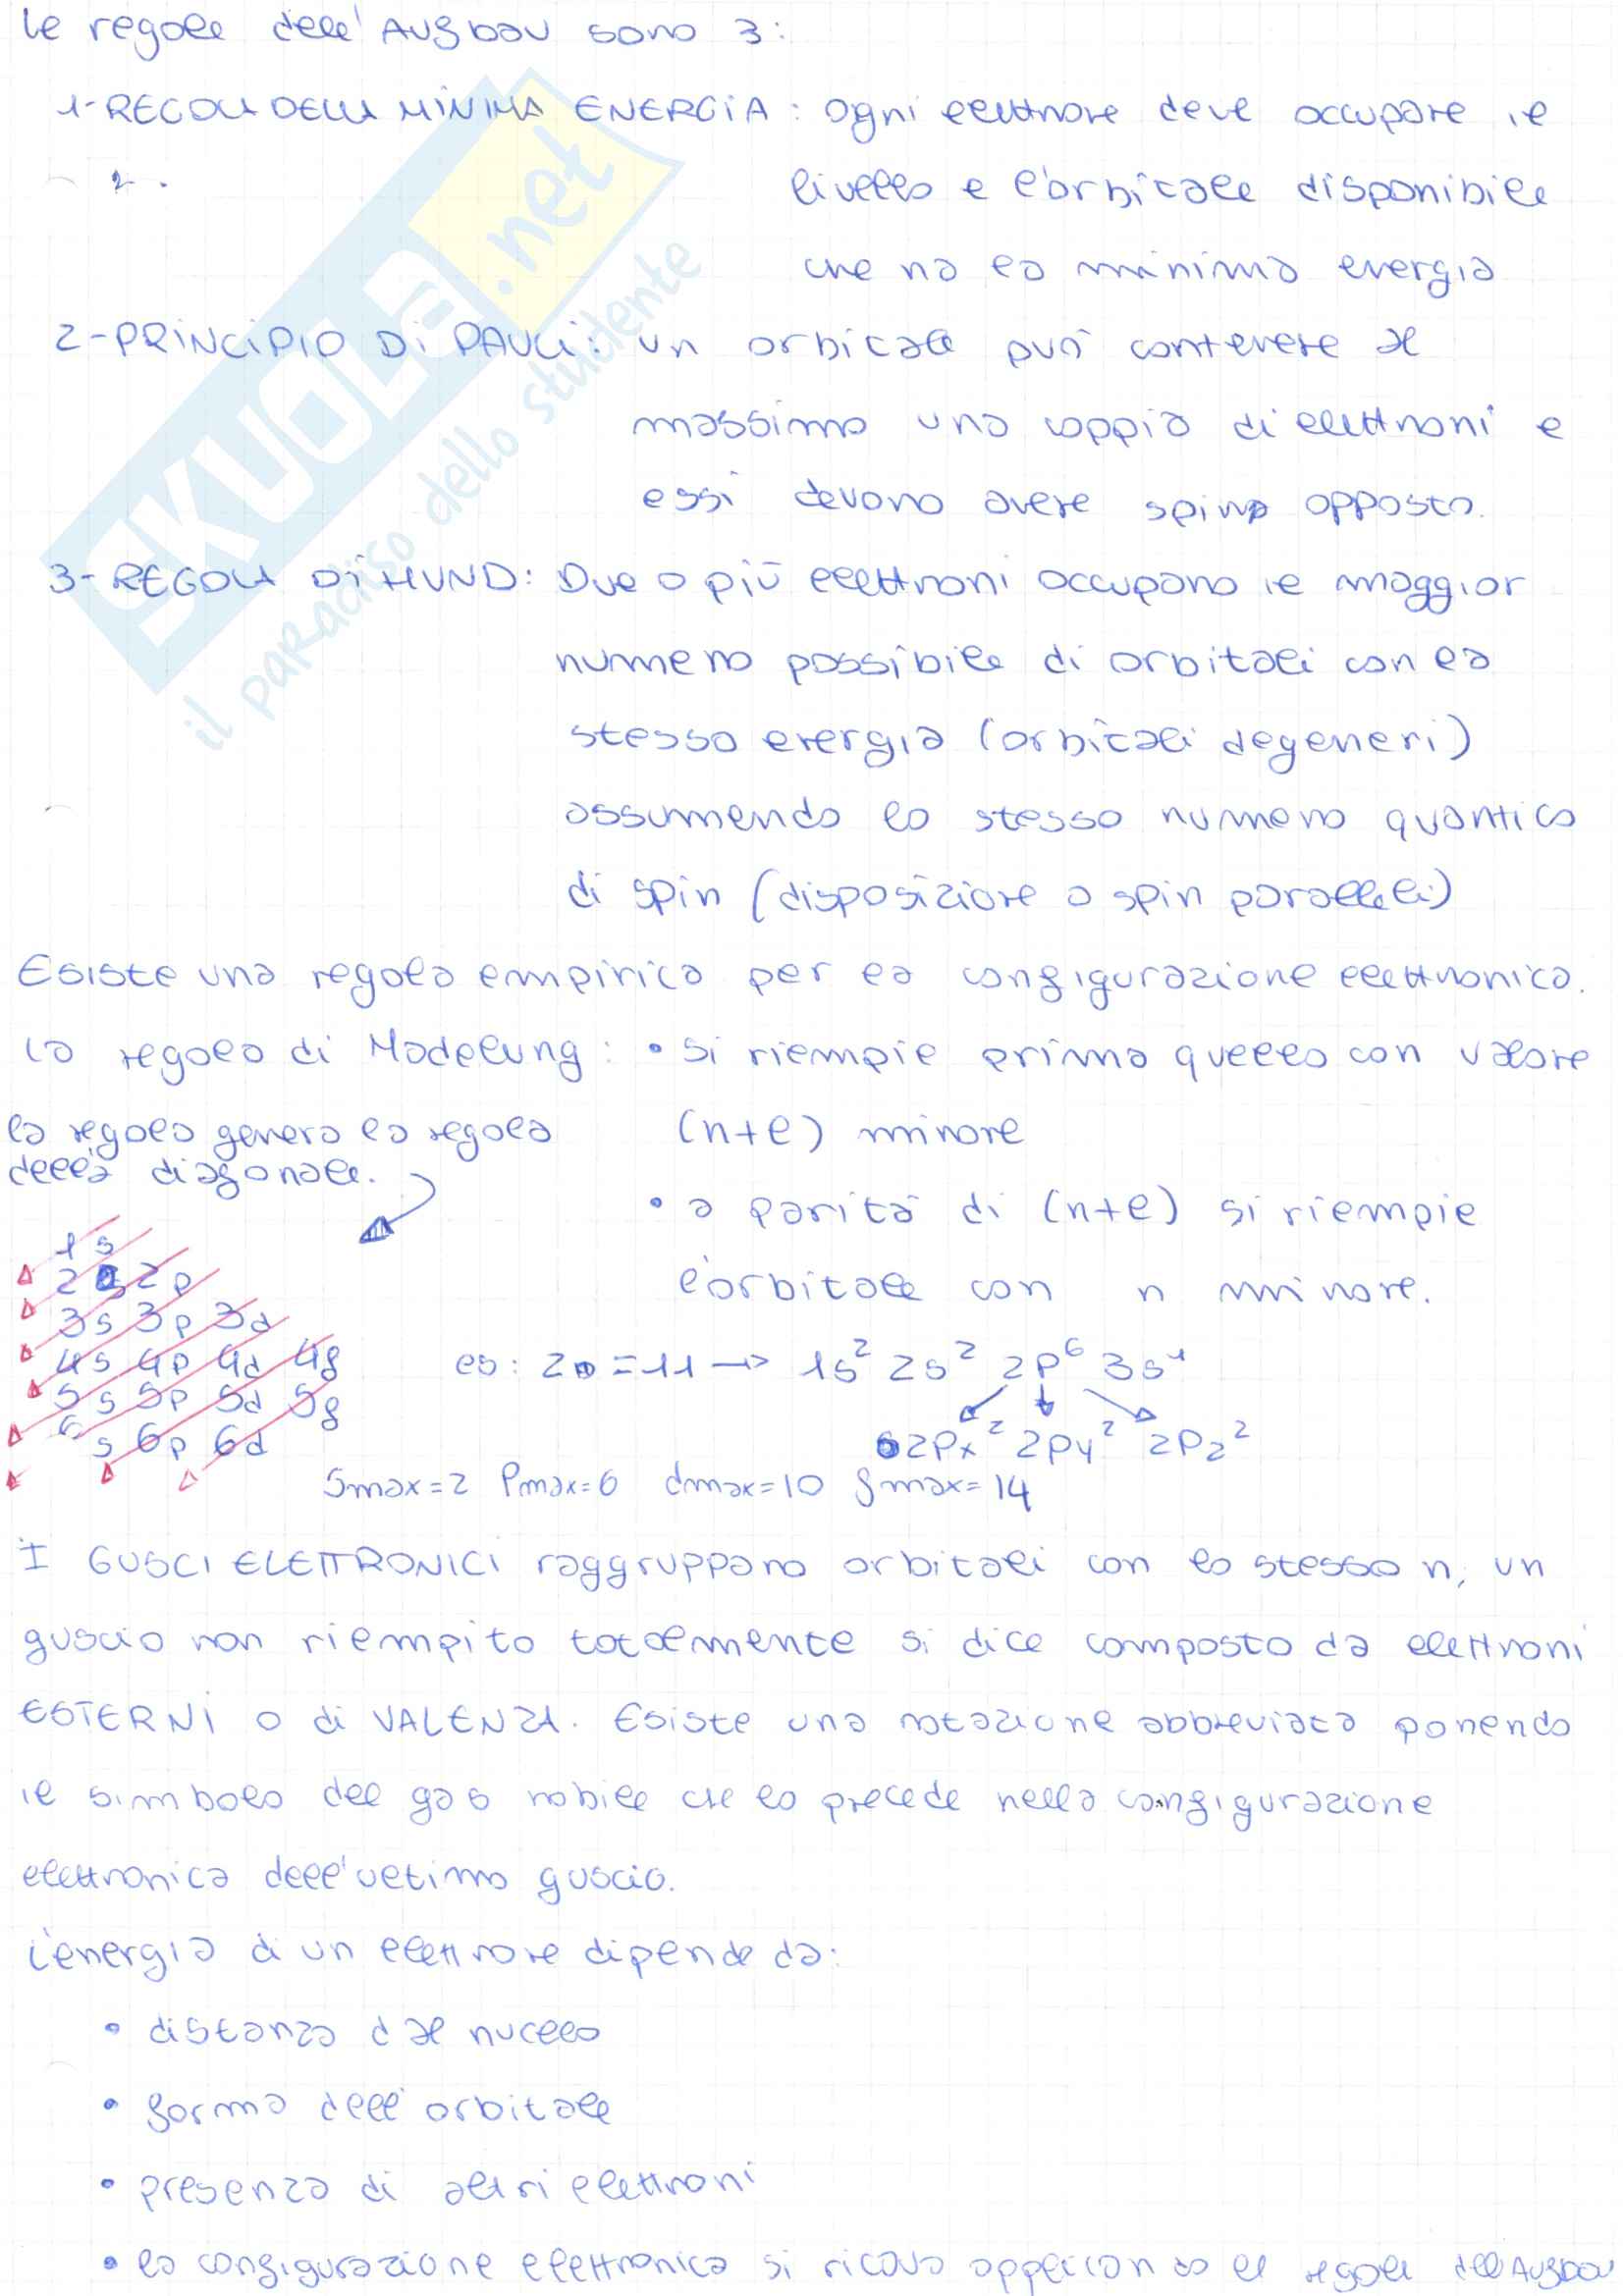 Le regole dell'Aufbau sono 3:
1-REGOLA DELLA MINIMA ENERGIA: Ogni elettrone deve occupare il
2.
livello e l'orbitale disponibile
che ha la minima energia
2-PRINCIPIO DI PAULI: un orbitale può contenere al
massimo una coppia di elettroni e
essi devono avere spin opposto.
3-REGOLA DI HUND: Due o più elettroni occupano il maggior
numero possibile di orbitali con la
stessa energia (orbitali degeneri)
assumendo lo stesso numero quantico
di spin (disposizione a spin paralleli)
Esiste una regola empirica per la configurazione elettronica.
La regola di Madelung: • si riempie prima quello con valore
(n+l) minore
la regola genera la regola
della diagonale.
• a parità di (n+l) si riempie
l'orbitale con n minore.
1s
2s 2p
3s 3p 3d
4s 4p 4d 4f
5s 5p 5d 5f
6s 6p 6d
es: Z=11 → 1s² 2s² 2p⁶ 3s¹
2px² 2py² 2pz²
smax=2 pmax=6 dmax=10 fmax=14
I GUSCI ELETTRONICI raggruppano orbitali con lo stesso n, un
guscio non riempito totalmente si dice composto da elettroni
ESTERNI o di VALENZA. Esiste una notazione abbreviata ponendo
il simbolo del gas nobile che lo precede nella configurazione
elettronica dell'ultimo guscio.
L'energia di un elettrone dipende da:
• distanza dal nucleo
• forma dell'orbitale
• presenza di altri elettroni
• la configurazione elettronica si ricava applicando le regole dell'Aufbau
SKUOLA.net
il paradiso dello studente